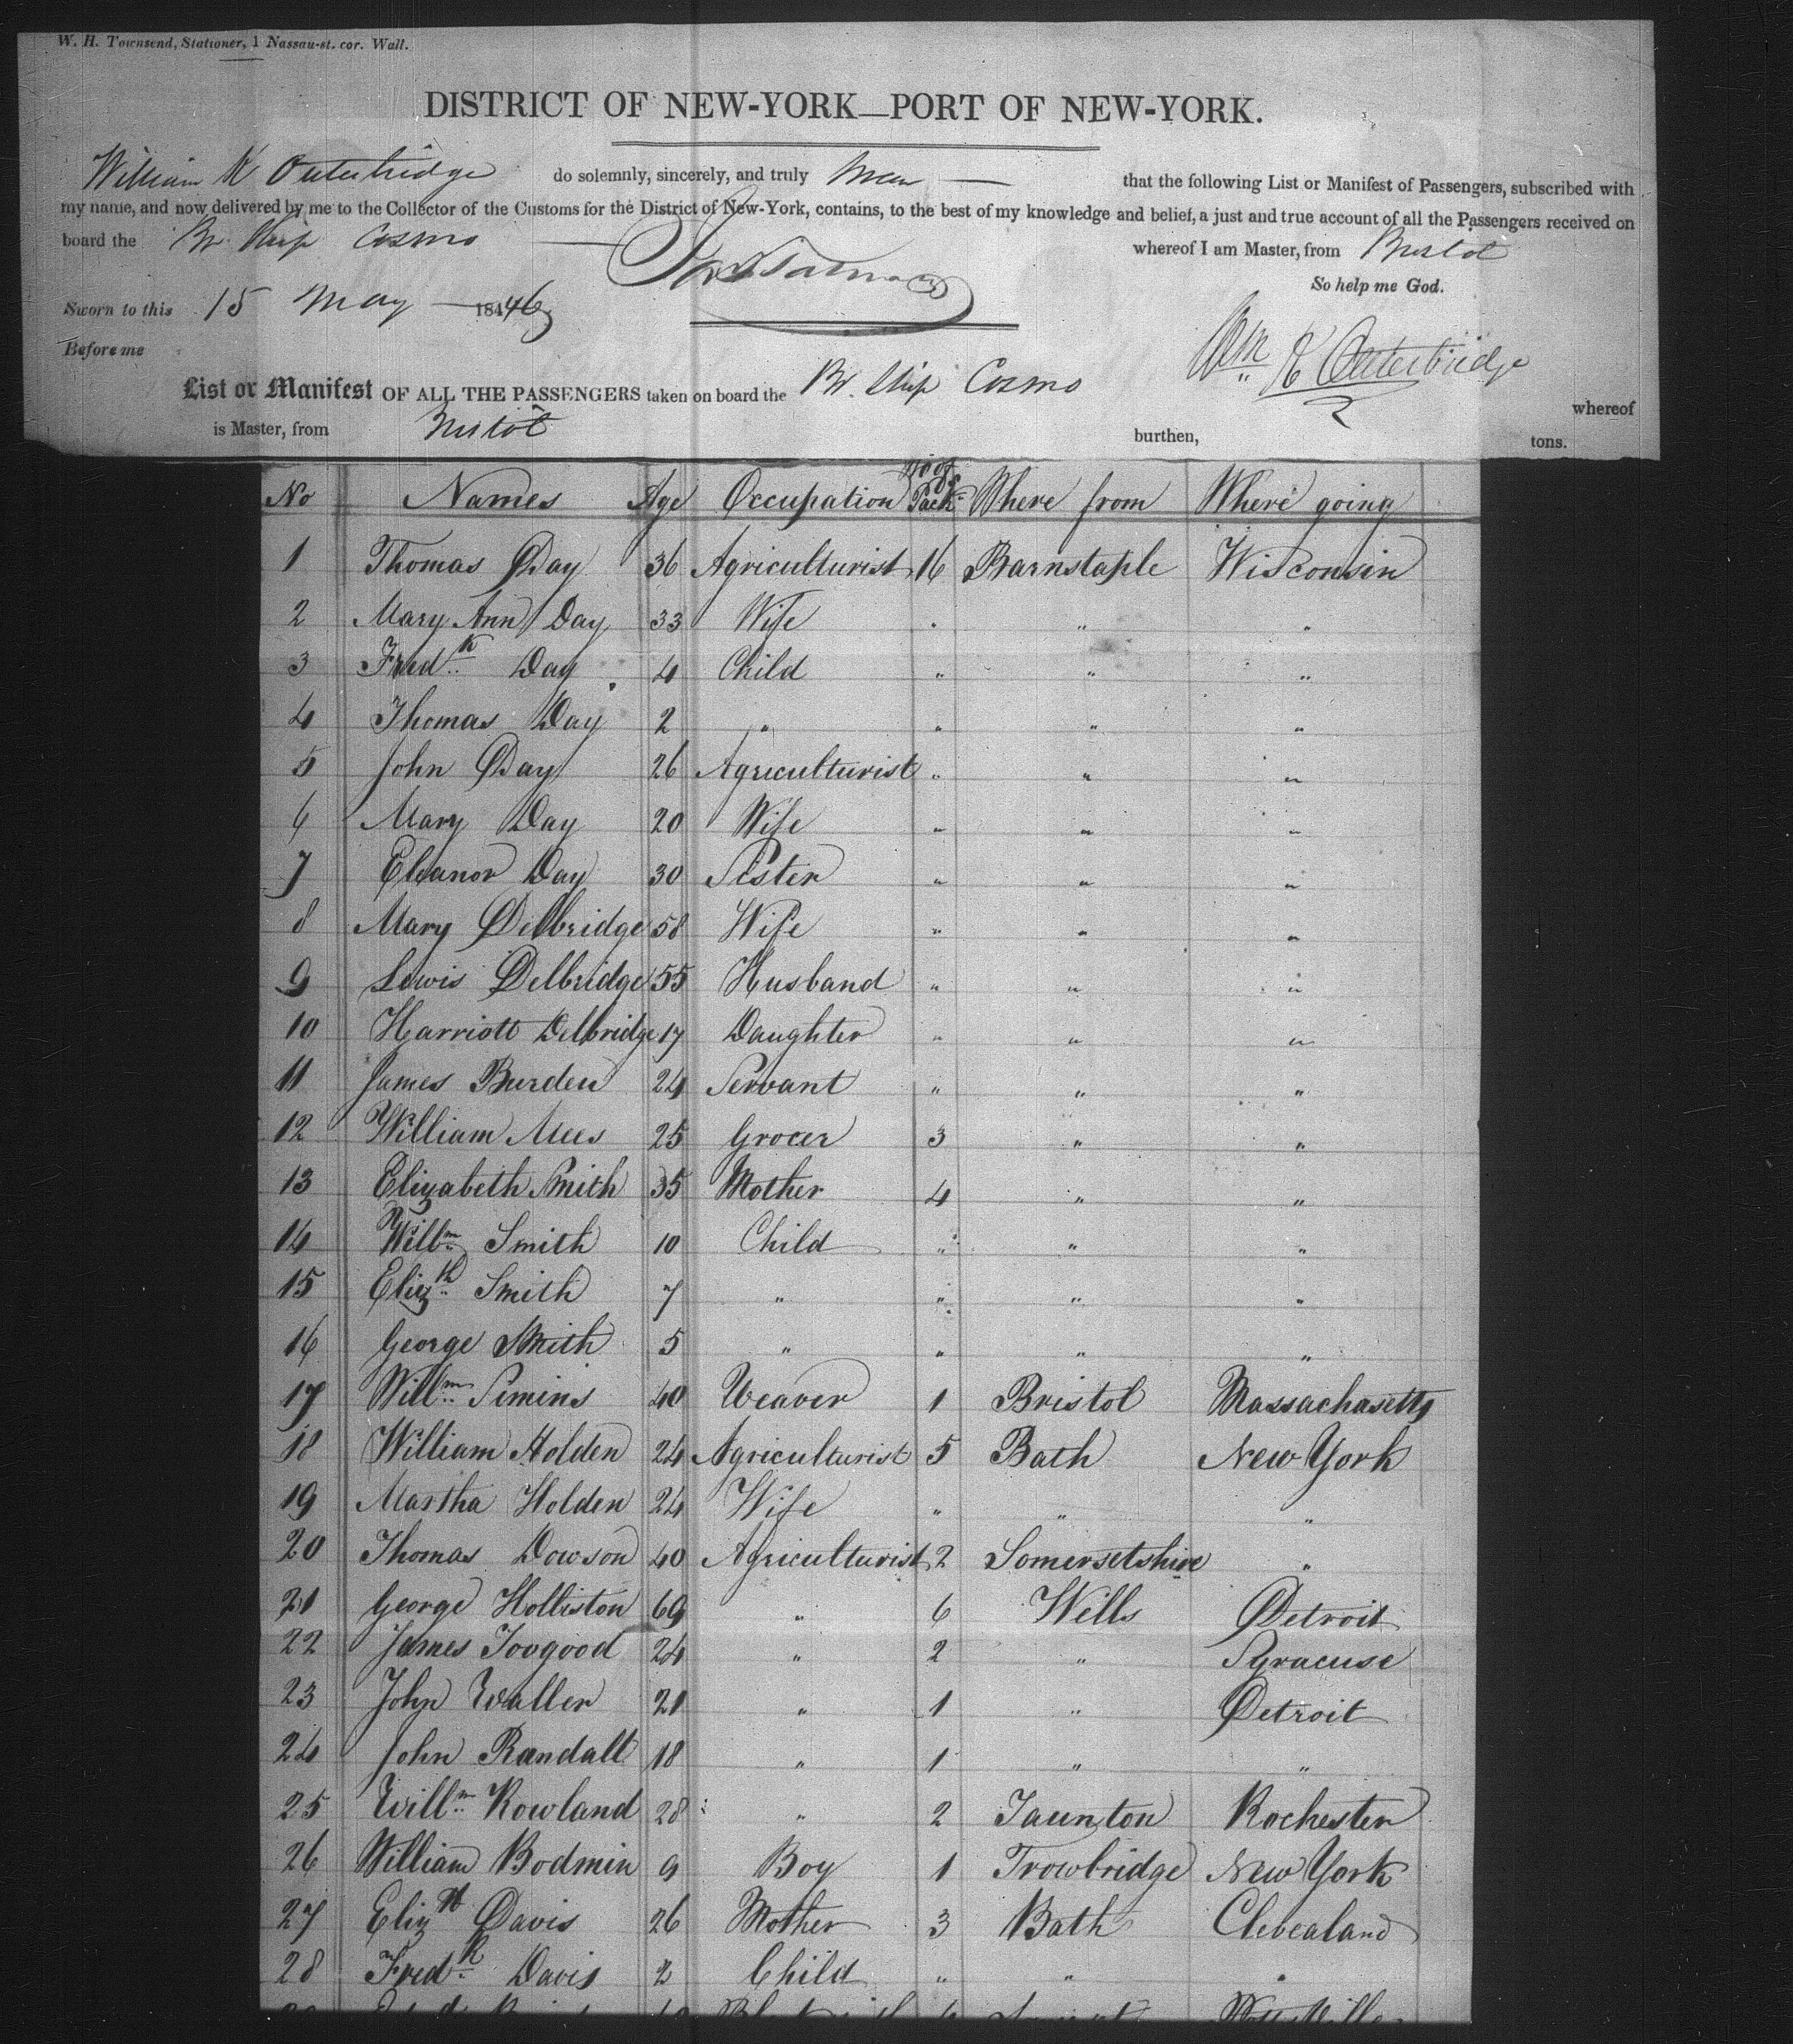 W. H. Townsend, Stationer, 1 Nassau-st. cor. Wall.
DISTRICT OF NEW-YORK—PORT OF NEW-YORK.
William K Outerbridge do solemnly, sincerely, and truly that the following List or Manifest of Passengers, subscribed with
my name, and now delivered by me to the Collector of the Customs for the District of New-York, contains, to the best of my knowledge and belief, a just and true account of all the Passengers received on
board the Br. Ship Cosmo whereof I am Master, from Bristol
So help me God.
Sworn to this 15 May 18446
Before me
Wm K Outerbridge
List or Manifest OF ALL THE PASSENGERS taken on board the Br. Ship Cosmo whereof
is Master, from Bristol burthen, tons.
No Names Age Occupation No of Pack Where from Where going
1 Thomas Day 36 Agriculturist 16 Barnstaple Wisconsin
2 Mary Ann Day 33 Wife " " "
3 Fredk Day 4 Child " " "
4 Thomas Day 2 " " " "
5 John Day 26 Agriculturist " " "
6 Mary Day 20 Wife " " "
7 Eleanor Day 30 Sister " " "
8 Mary Delbridge 58 Wife " " "
9 Lewis Delbridge 55 Husband " " "
10 Harriott Delbridge 17 Daughter " " "
11 James Burden 24 Servant " " "
12 William Mees 25 Grocer 3 " "
13 Elizabeth Smith 35 Mother 4 " "
14 Willm Smith 10 Child " " "
15 Elizth Smith 7 " " " "
16 George Smith 5 " " " "
17 Willm Simins 40 Weaver 1 Bristol Massachasetts
18 William Holden 24 Agriculturist 5 Bath New York
19 Martha Holden 24 Wife " " "
20 Thomas Dowson 40 Agriculturist 2 Somersetshire "
21 George Holliston 69 " 6 Wells Detroit
22 James Toogood 24 " 2 " Syracuse
23 John Waller 21 " 1 " Detroit
24 John Randall 18 " 1 " "
25 Willm Rowland 28 " 2 Taunton Rochester
26 William Bodmin 9 Boy 1 Trowbridge New York
27 Elizth Davis 26 Mother 3 Bath Clevealand
28 Fredk Davis 2 Child " " "